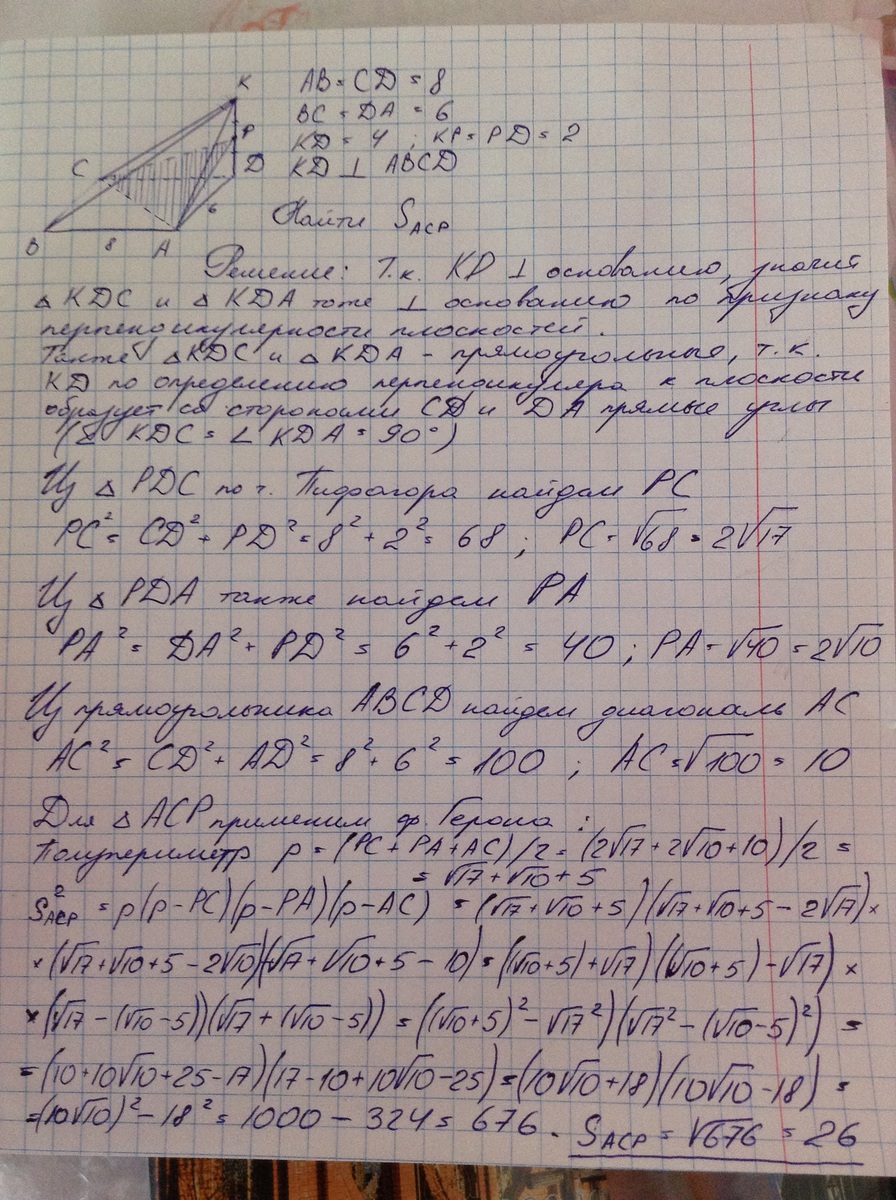 K
P
C
D
6
B
8
A
AB = CD = 8
BC = DA = 6
KD = 4 ; KP = PD = 2
KD ⊥ ABCD
Найти S_ACP
Решение: Т.к. KD ⊥ основанию, значит
△ KDC и △ KDA тоже ⊥ основанию по признаку
перпендикулярности плоскостей.
Также △KDC и △KDA - прямоугольные, т.к.
KD по определению перпендикуляра к плоскости
образует со сторонами CD и DA прямые углы
(∠ KDC = ∠ KDA = 90°)
Из △ PDC по т. Пифагора найдем PC
PC² = CD² + PD² = 8² + 2² = 68 ; PC = √68 = 2√17
Из △ PDA также найдем PA
PA² = DA² + PD² = 6² + 2² = 40 ; PA = √40 = 2√10
Из прямоугольника ABCD найдем диагональ AC
AC² = CD² + AD² = 8² + 6² = 100 ; AC = √100 = 10
Для △ ACP применим ф. Герона :
Полупериметр p = (PC + PA + AC)/2 = (2√17 + 2√10 + 10)/2 =
= √17 + √10 + 5
S²_ACP = p(p-PC)(p-PA)(p-AC) = (√17 + √10 + 5)(√17 + √10 + 5 - 2√17) ×
× (√17 + √10 + 5 - 2√10)(√17 + √10 + 5 - 10) = ((√10+5) + √17)((√10+5) - √17) ×
× (√17 - (√10-5))(√17 + (√10-5)) = ((√10+5)² - √17²)(√17² - (√10-5)²) =
= (10+10√10+25-17)(17-10+10√10-25) = (10√10+18)(10√10-18) =
= (10√10)² - 18² = 1000 - 324 = 676. S_ACP = √676 = 26